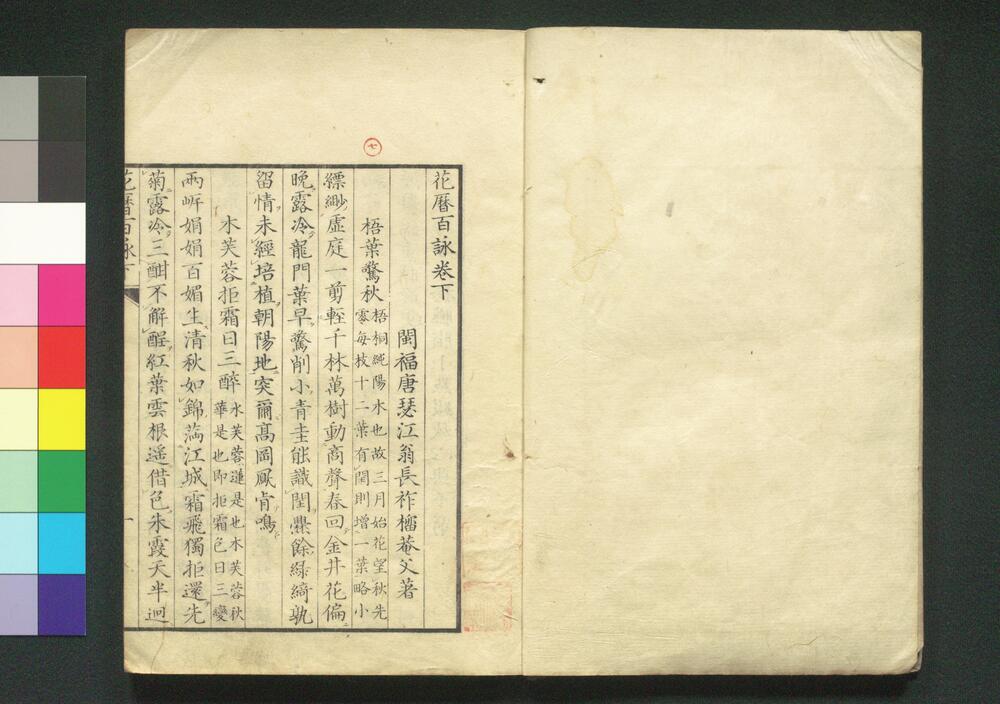 七
花曆百詠卷下
閩福唐瑟江翁長祚榴菴父著
梧葉驚秋
梧桐純陽木也故三月始花望秋先
零每枝十二葉有閏則增一葉略小
縹緲虛庭一剪輕千林萬樹動商聲春回金井花偏
晚露冷龍門葉早驚削小青圭能識閏爨餘綠綺孰
留情未經培植朝陽地突爾高岡鳳肯鳴
木芙蓉拒霜日三醉
水芙蓉蓮是也木芙蓉秋
華是也即拒霜色日三變
兩岍娟娟百媚生清秋如錦滿江城霜飛獨拒還先
菊露冷三酣不解酲紅葉雲根遥借色朱霞天半迥
花曆百詠下
一